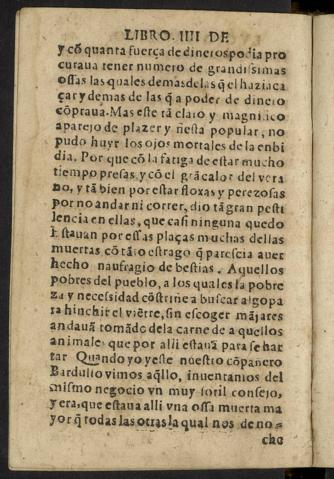 LIBRO. IIII DE
y cõ quanta fuerça de dineros podia pro
curaua tener numero de grandissimas
ossas las quales demas de las q̃ el hazia ca
çar y demas de las q̃ a poder de dinero
cõpraua. Mas este tã claro y magnifico
aparejo de plazer y fiesta popular, no
pudo huyr los ojos mortales de la enbi
dia. Por que cõ la fatiga de estar mucho
tiempo presas y cõ el grã calor del vera
no, y tã bien por estar floxas y perezosas
por no andar ni correr, dio tã gran pesti
lencia en ellas, que casi ninguna quedo
Estauan por essas plaças muchas dellas
muertas cõ tãto estrago q̃ parescia auer
hecho naufragio de bestias. Aquellos
pobres del pueblo, a los quales la pobre
za y necesidad cõstriñe a buscar algo pa
ra hinchir el viẽtre, sin escoger mãjares
andauã tomãdo de la carne de a quellos
animales que por alli estauã para se har
tar Quando yo y este nuestro cõpañero
Bardullo vimos aq̃llo, inuentamos del
mismo negocio vn muy sotil consejo,
y era, que estaua alli vna ossa muerta ma
yor q̃ todas las otras la qual nos de no-
che